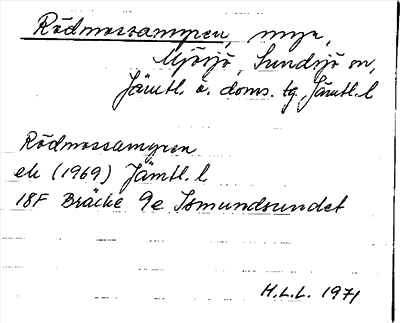 Rödmossamyren, myr,
Mjösjö, Sundsjö sn,
Jämtl. ö. doms. tg. Jämtl. l
Rödmossamyren
ek (1969) Jämtl. l
18F Bräcke 9e Ismundsundet
H.L.L. 1971